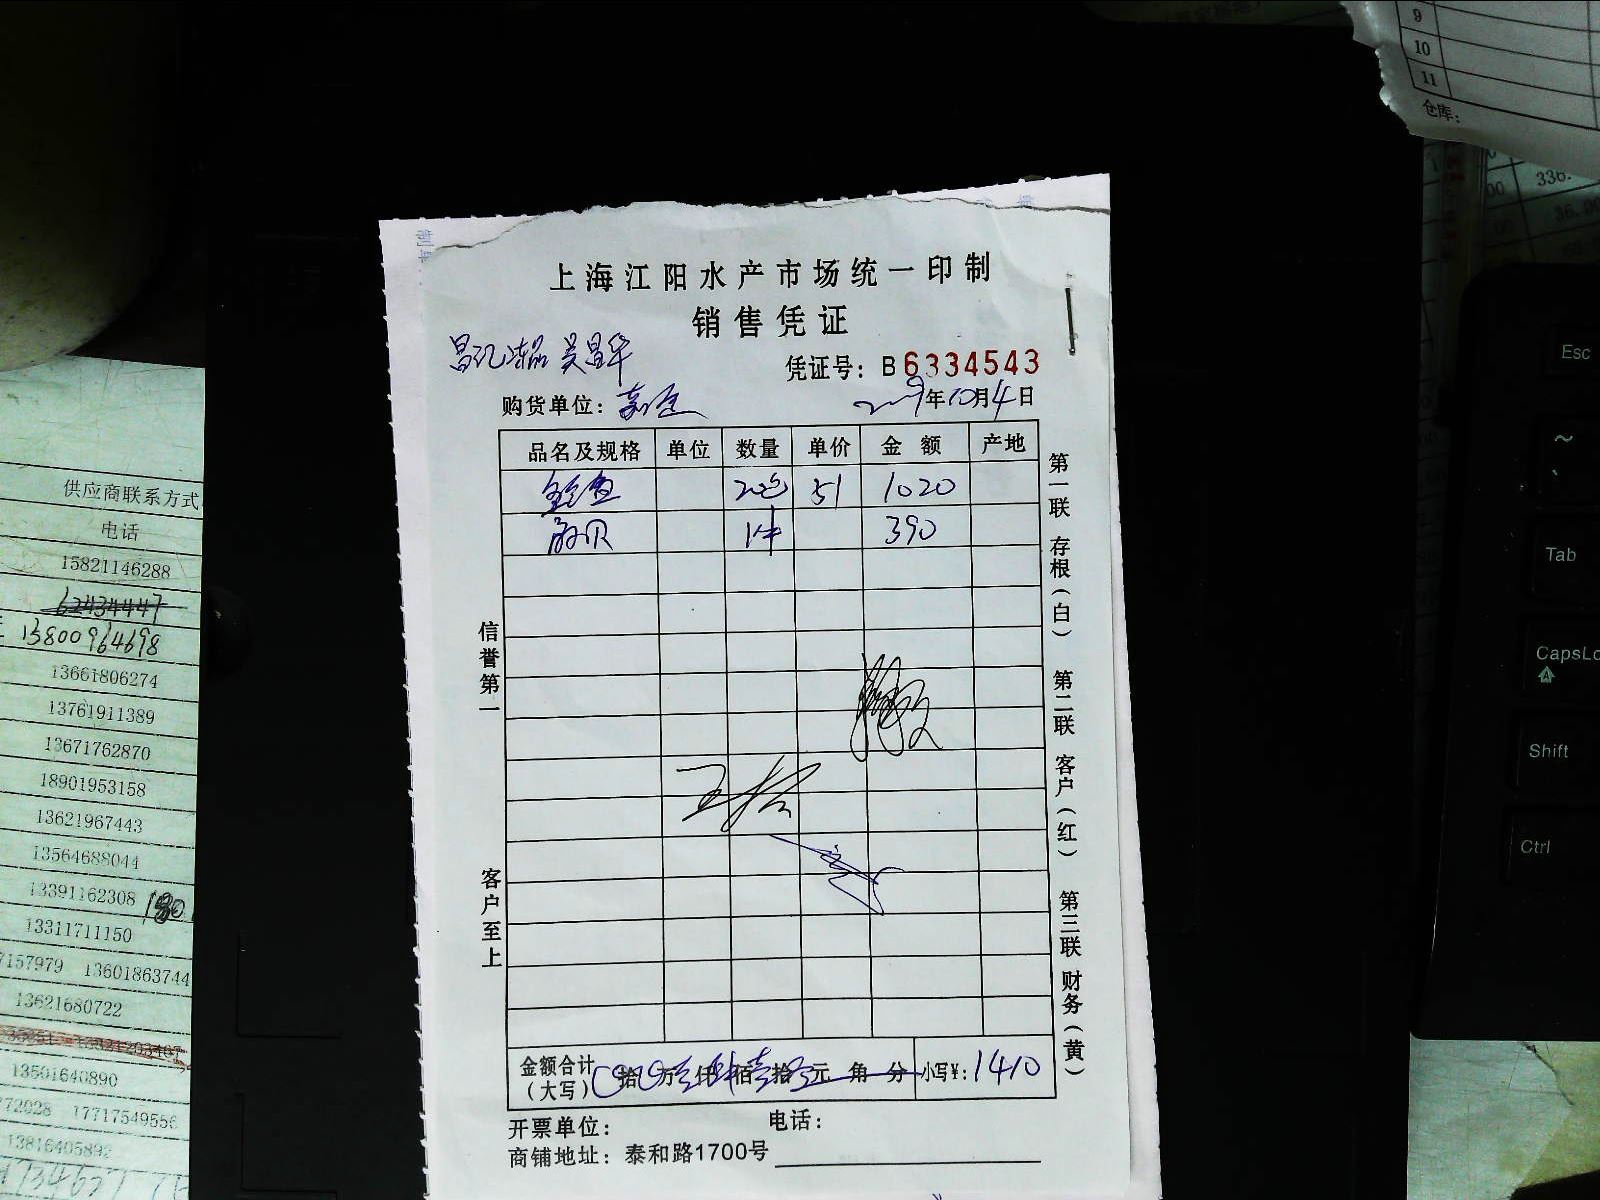 9
10
11
仓库:
336.
36.00
上海江阳水产市场统一印制
销售凭证
昌记冻品 吴昌华
凭证号: B6334543
购货单位:
2009年10月4日
品名及规格 单位 数量 单价 金额 产地
鲳鱼 20包 51 1020
扇贝 1件 390
信誉第一
客户至上
第一联 存根(白) 第二联 客户(红) 第三联 财务(黄)
金额合计(大写) 拾 万 仟 佰 拾 元 角 分 小写¥: 1410
开票单位: 电话:
商铺地址: 泰和路1700号
供应商联系方式
电话
15821146288
62434447
13800964698
13661806274
13761911389
13671762870
18901953158
13621967443
13564688044
13391162308 180
13311711150
7157979 13601863744
13621680722
13501640890
772028 17717549556
13816405892
Esc
~
Tab
CapsLo
Shift
Ctrl